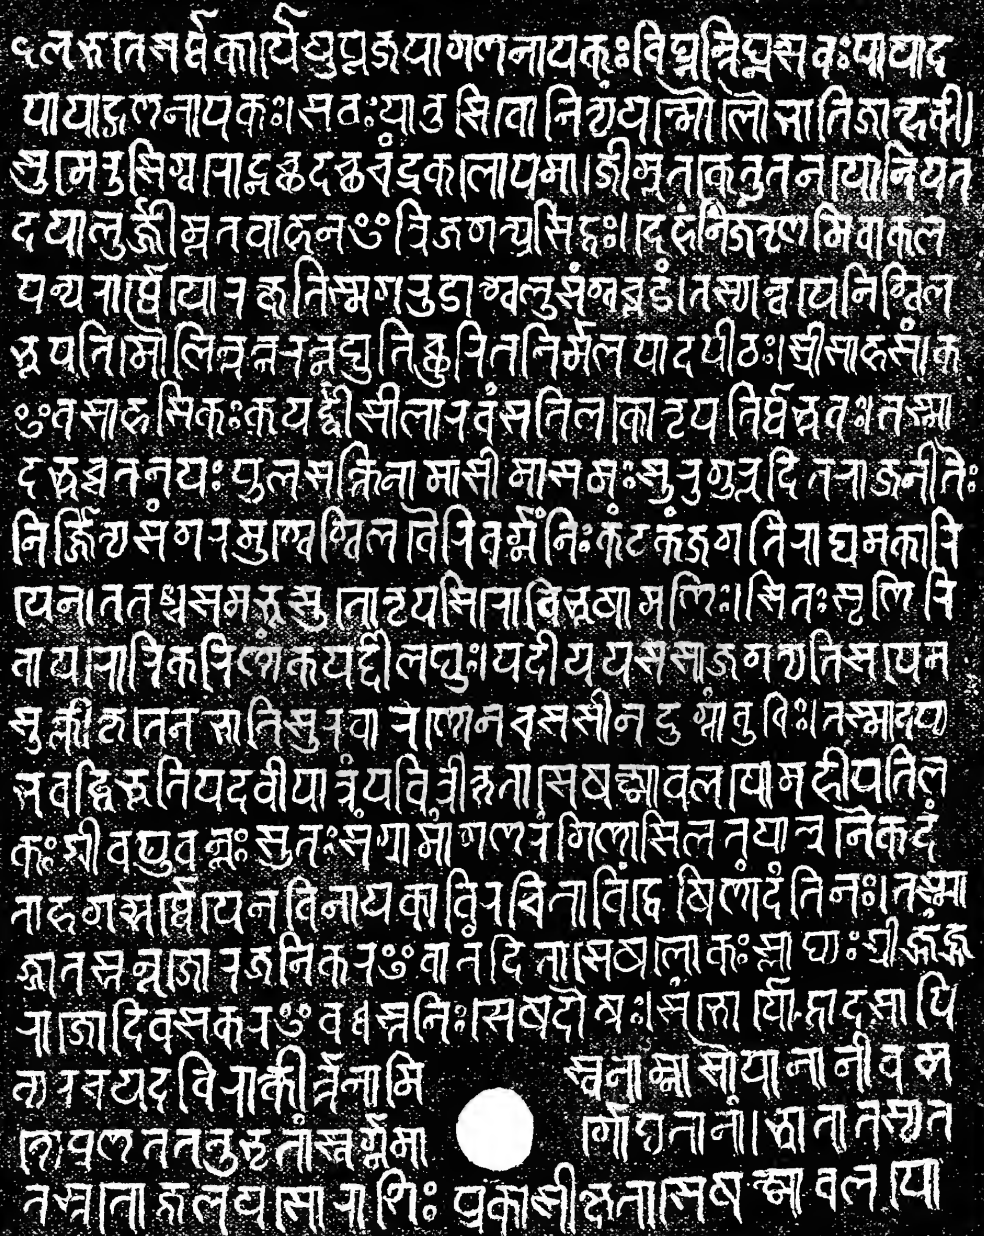 ९लभते सर्व्वकार्येषु पूजया गणनायकः। विघ्नन्निघ्नन्स वः पायाद
पायाद्गणनायकः। स वः पातु सिवो नित्यं यन्मौलौ भाति जाह्नवी।
सुमेरुसिखरोद्गच्छदच्छचंद्रकलोपमा। जीमूतकेतुतनयो नियतं
दयालुर्जीमूतवाहन इ त्रिजगत्प्रसिद्धः।। देहं निजं तृणमिवाकल
यन्परार्थे यो रक्षति स्म गरुडात्खलु संखचूडं। तस्यान्वये निखिल
भूपतिमौलिलग्नरत्नद्युतिच्छुरितनिर्मलपादपीठः। श्रीसाहसांक
इव साहसिकः कपर्दी सीलारवंसतिलको नृपतिर्बभूवः। तस्मा
दभूच्च तनयः पुलसक्तिनामा सीमासमः सुरगुरूदितराजनीतेः
निर्जित्य संगरमुखेखिलवैरिवर्गं निःकंटकं जगति राज्यमकारि
येन। ततश्च समभूत्सुतो नृपसिरोविभूषामणिः। सितः सृणिरि
वापरोरिकरिणां कपर्द्दी लघुः। यदीययससा जगत्यतिसयेन
सुक्लीकृते न भाति सुरवारणो न च ससी न दुग्धांबुधिः। तस्मादप्य
भवद्विभूतिपदवीपात्रं पवित्रीकृतासेषक्ष्मावलयो महीपतिल
कः श्रीवप्पुवन्नः सुतः संग्रामांगणरंगिणासिलतया येनैकदं
ता हठात्सर्व्वे येन विनायका विरचिता विद्वेषिणां दंतिनः। तस्मा
ज्जातस्तनूजो रजनिकर इवानंदितासेषलोकः स्लाघ्यः श्रीझंझ
राजो दिवसकर इव ध्वस्तनिःसेषदोषः। संभोर्यो द्वादसापि
व्यरचयदचिरात्कीर्त्तनानि स्वनाम्ना सोपानानीव म
न्ये प्रणततनुभृतां स्वर्ग्गमार्गोद्यतानां। भ्राता तस्य त
तस्ततोज्वलयसोरासिः प्रकासीकृतासेषक्ष्मावलयो